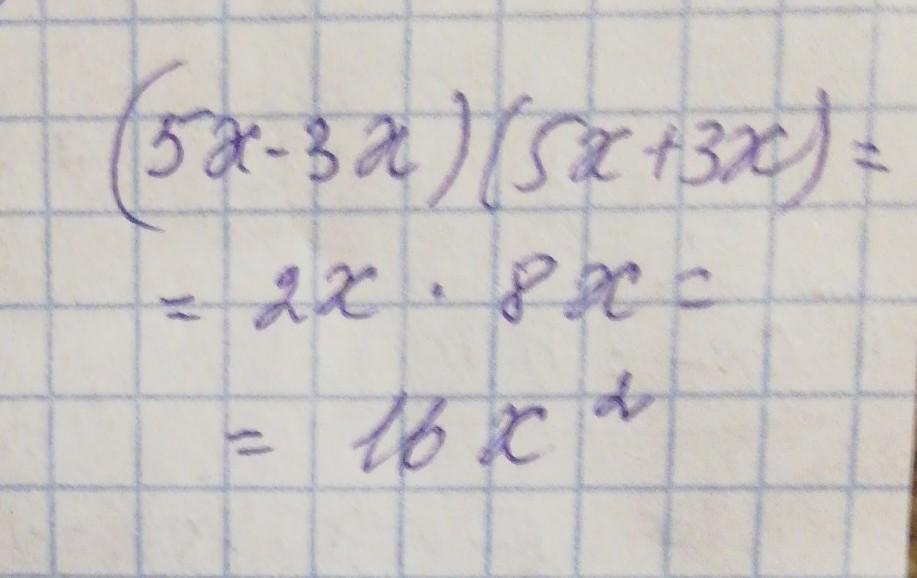 (5x-3x)(5x+3x)=
= 2x · 8x =
= 16x²